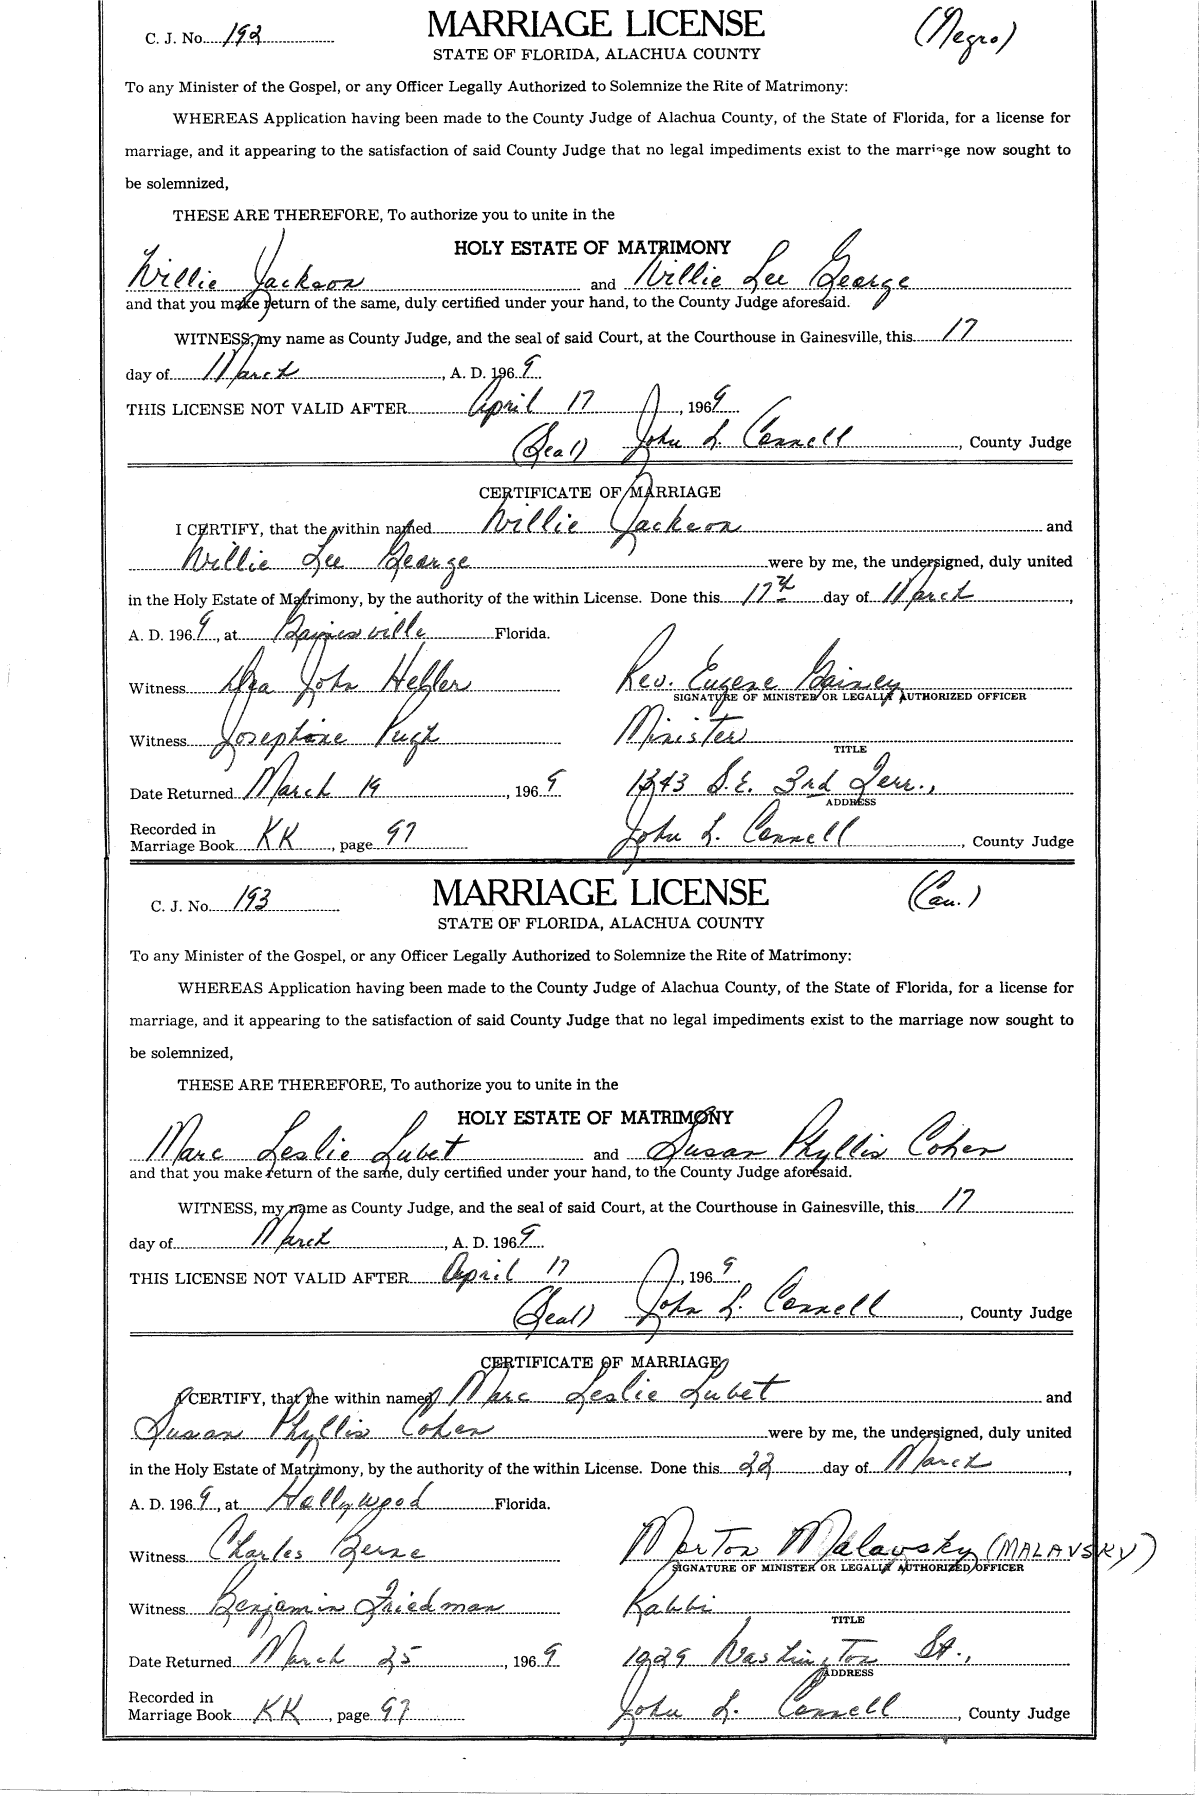 C. J. No. 192
MARRIAGE LICENSE
(Negro)
STATE OF FLORIDA, ALACHUA COUNTY
To any Minister of the Gospel, or any Officer Legally Authorized to Solemnize the Rite of Matrimony:
WHEREAS Application having been made to the County Judge of Alachua County, of the State of Florida, for a license for
marriage, and it appearing to the satisfaction of said County Judge that no legal impediments exist to the marriage now sought to
be solemnized,
THESE ARE THEREFORE, To authorize you to unite in the
HOLY ESTATE OF MATRIMONY
Willie Jackson and Willie Lee George
and that you make return of the same, duly certified under your hand, to the County Judge aforesaid.
WITNESS, my name as County Judge, and the seal of said Court, at the Courthouse in Gainesville, this 17
day of March, A. D. 1969
THIS LICENSE NOT VALID AFTER April 17, 1969
(Seal) John L. Connell, County Judge
CERTIFICATE OF MARRIAGE
I CERTIFY, that the within named Willie Jackson and
Willie Lee George were by me, the undersigned, duly united
in the Holy Estate of Matrimony, by the authority of the within License. Done this 17th day of March,
A. D. 1969, at Gainesville Florida.
Witness John Rev. Eugene Gainey
SIGNATURE OF MINISTER OR LEGALLY AUTHORIZED OFFICER
Witness Josephine Pugh Minister
TITLE
Date Returned March 19, 1969 1343 S.E. 3rd Terr.,
ADDRESS
Recorded in
Marriage Book KK, page 97 John L. Connell, County Judge
C. J. No. 193
MARRIAGE LICENSE
(Cau.)
STATE OF FLORIDA, ALACHUA COUNTY
To any Minister of the Gospel, or any Officer Legally Authorized to Solemnize the Rite of Matrimony:
WHEREAS Application having been made to the County Judge of Alachua County, of the State of Florida, for a license for
marriage, and it appearing to the satisfaction of said County Judge that no legal impediments exist to the marriage now sought to
be solemnized,
THESE ARE THEREFORE, To authorize you to unite in the
HOLY ESTATE OF MATRIMONY
Marc Leslie Lubet and Susan Phyllis Cohen
and that you make return of the same, duly certified under your hand, to the County Judge aforesaid.
WITNESS, my name as County Judge, and the seal of said Court, at the Courthouse in Gainesville, this 17
day of March, A. D. 1969
THIS LICENSE NOT VALID AFTER April 17, 1969
(Seal) John L. Connell, County Judge
CERTIFICATE OF MARRIAGE
I CERTIFY, that the within named Marc Leslie Lubet and
Susan Phyllis Cohen were by me, the undersigned, duly united
in the Holy Estate of Matrimony, by the authority of the within License. Done this 22 day of March,
A. D. 1969, at Hollywood Florida.
Witness Charles Berne Morton Malavsky (MALAVSKY)
SIGNATURE OF MINISTER OR LEGALLY AUTHORIZED OFFICER
Witness Benjamin Friedman Rabbi
TITLE
Date Returned March 25, 1969 1929 Washington St.,
ADDRESS
Recorded in
Marriage Book KK, page 97 John L. Connell, County Judge